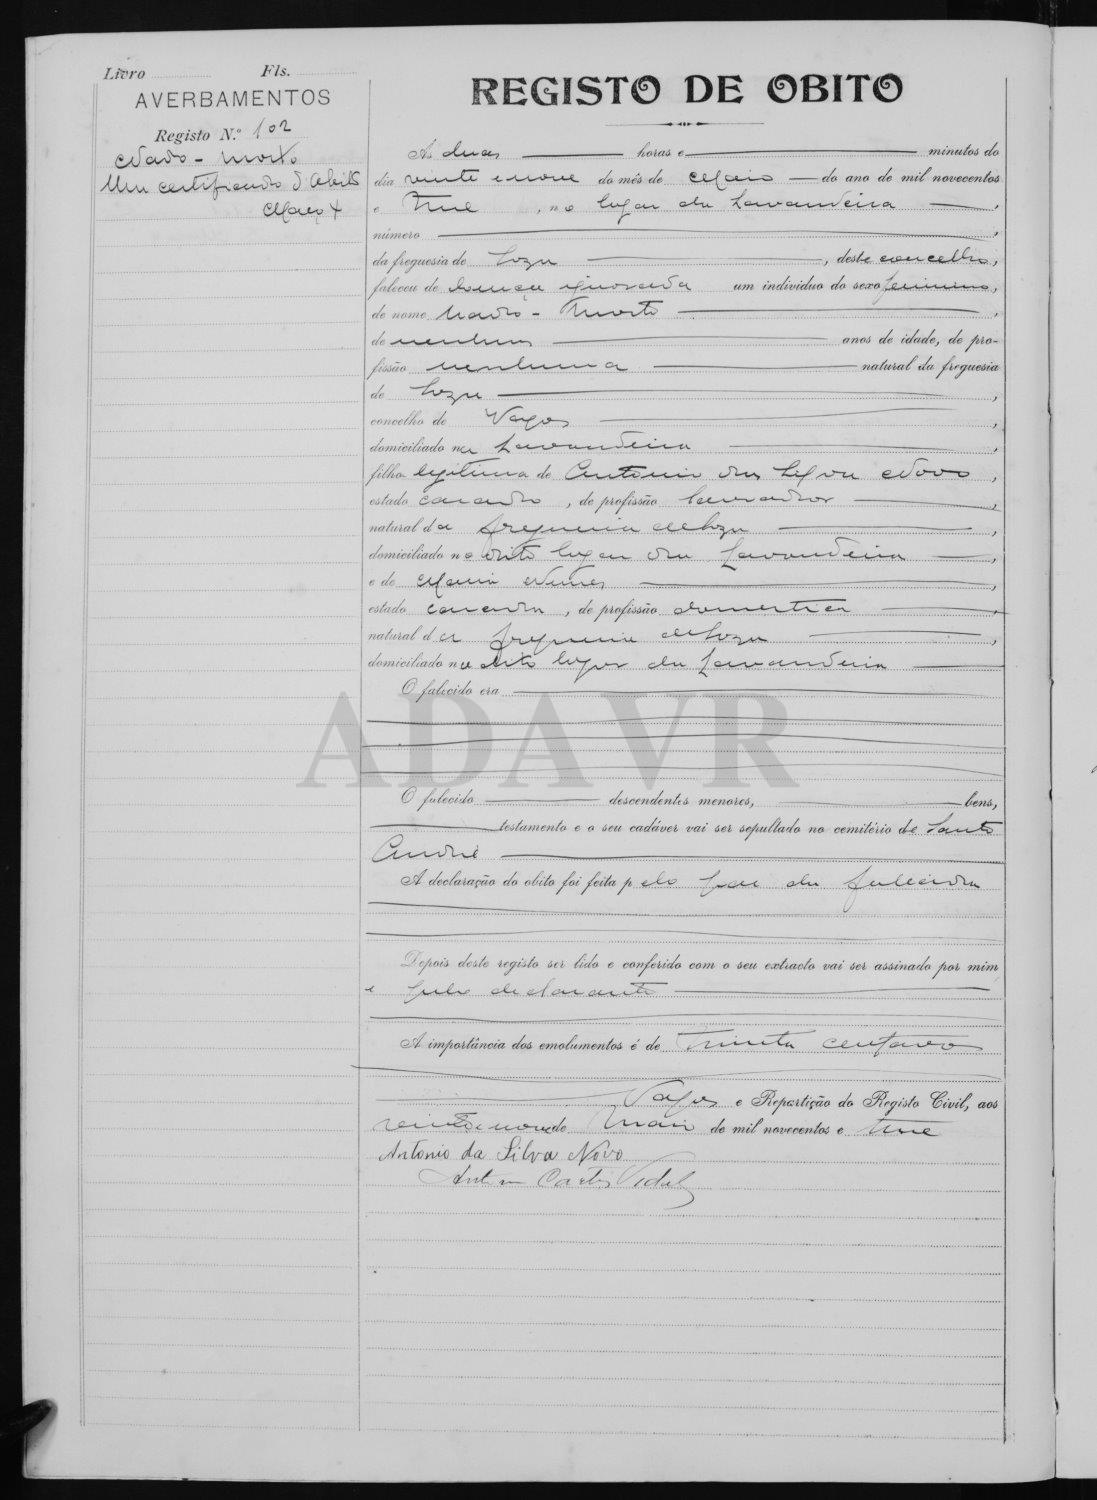 Livro Fls.
AVERBAMENTOS
Registo N.º 102
Nado-morto
Um certificado d'obito
Março
REGISTO DE OBITO
As duas horas e minutos do
dia vinte e nove do mês de Maio do ano de mil novecentos
e treze, no lugar da Lavandeira,
número,
da freguesia de Soza, deste concelho,
faleceu de doença ignorada um individuo do sexo feminino,
de nome Nado-morto,
de nenhuns anos de idade, de pro-
fissão nenhuma natural da freguesia
de Soza,
concelho de Vagos,
domiciliado na Lavandeira
filha legitima de Antonio da Silva Novo,
estado casado, de profissão lavrador,
natural da freguesia de Soza,
domiciliado no dito lugar da Lavandeira,
e de Maria Nunes,
estado casada, de profissão domestica,
natural da freguesia de Soza,
domiciliado no dito lugar da Lavandeira
O falecido era
ADAVR
O falecido descendentes menores, bens,
testamento e o seu cadáver vai ser sepultado no cemitério de Santo
André
A declaração do obito foi feita pelo pai da falecida
Depois deste registo ser lido e conferido com o seu extracto vai ser assinado por mim
e pelo declarante
A importância dos emolumentos é de trinta centavos
Vagos e Repartição do Registo Civil, aos
vinte e nove de maio de mil novecentos e treze
Antonio da Silva Novo
Vidal